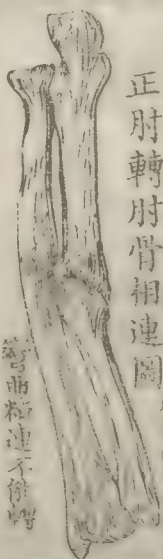 正肘轉肘骨相連圖
彎曲粘連不能轉